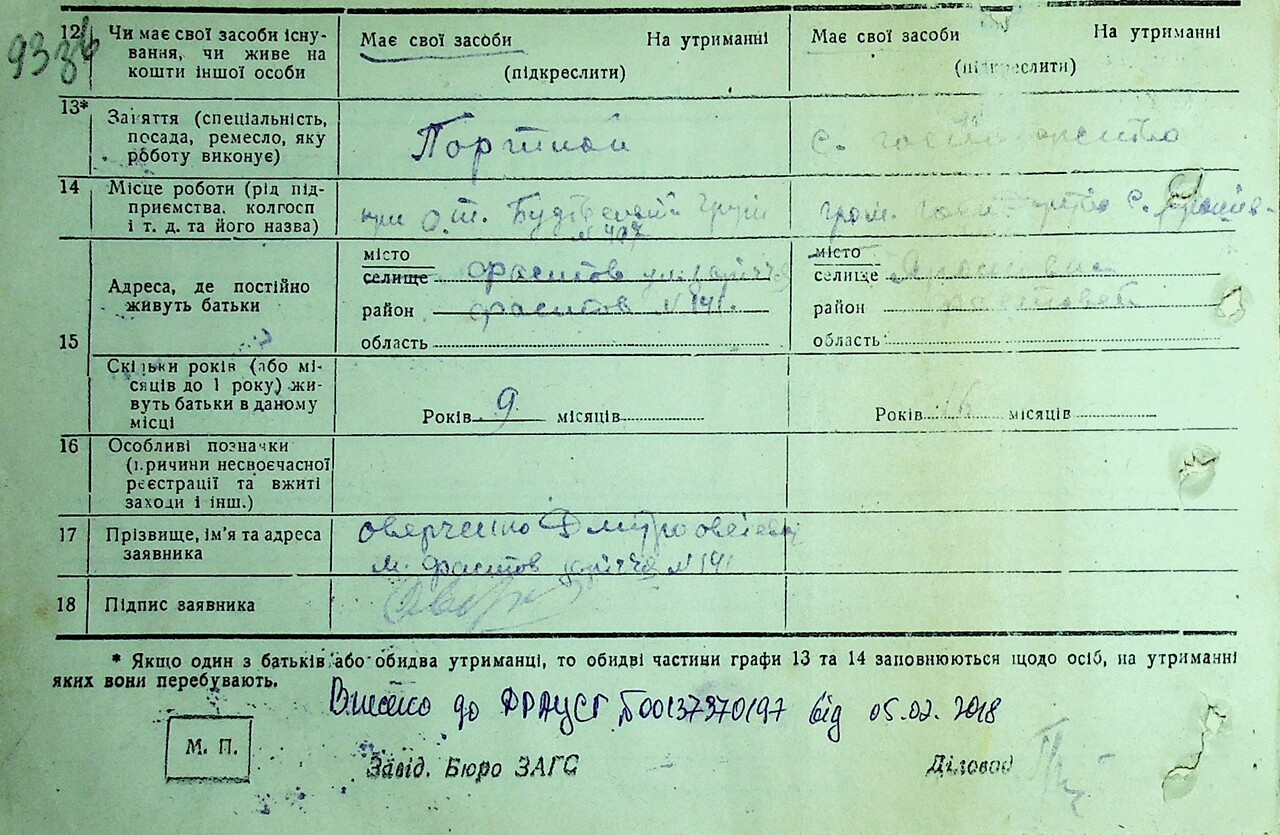 93зв
12 Чи має свої засоби існу-
вання, чи живе на
кошти іншої особи
Має свої засоби На утриманні
(підкреслити)
Має свої засоби На утриманні
(підкреслити)
13* Заняття (спеціальність,
посада, ремесло, яку
роботу виконує)
Портной
с.
14 Місце роботи (рід під-
приємства, колгосп
і т. д. та його назва)
при
гром. с.
15 Адреса, де постійно
живуть батьки
місто
селище Фаситов
район Фаситов N 141.
область
місто
селище
район
область
Скільки років (або мі-
сяців до 1 року) жи-
вуть батьки в даному
місці
Років 9 місяців
Років 16 місяців
16 Особливі позначки
(причини несвоєчасної
реєстрації та вжиті
заходи і інш.)
17 Прізвище, ім'я та адреса
заявника
Оверченко Дмитро
м. Фаситов N 141
18 Підпис заявника
* Якщо один з батьків або обидва утриманці, то обидві частини графи 13 та 14 заповнюються щодо осіб, на утриманні
яких вони перебувають.
Внесено до ДРАЦСГ 00137370197 від 05.02.2018
М. П.
Завід. Бюро ЗАГС Діловод